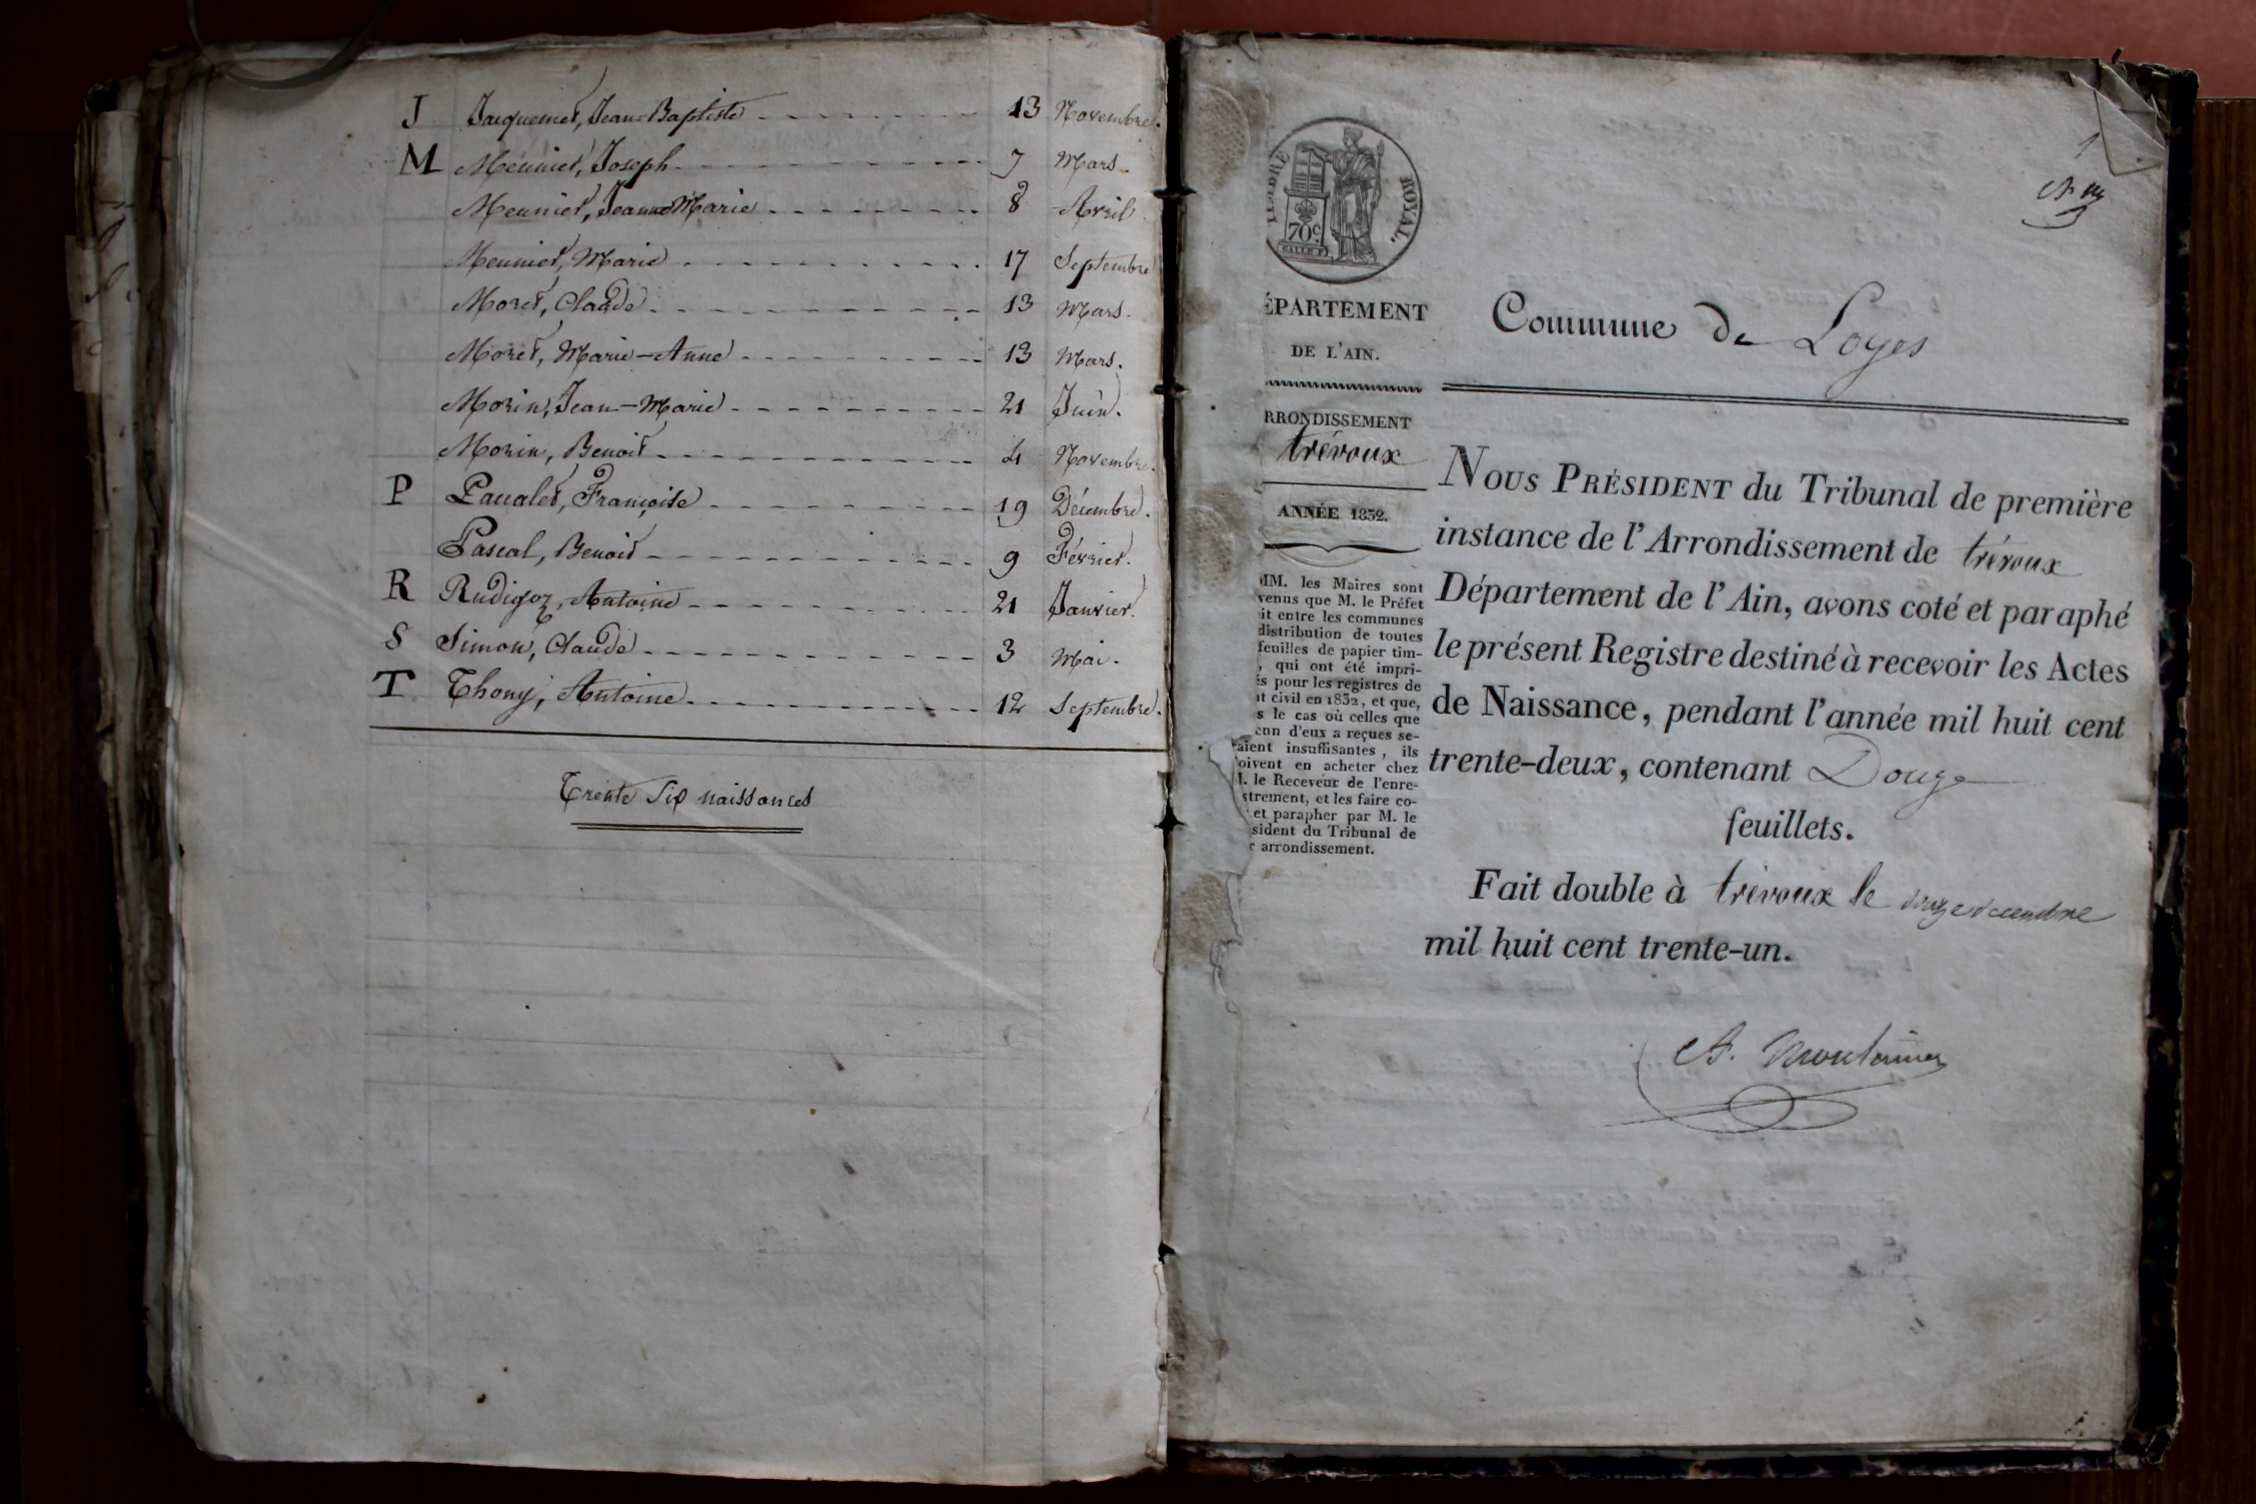 J Jacquemet, Jean-Baptiste 13 Novembre.
M Meunier, Joseph 7 Mars.
Meunier, Jeanne Marie 8 Avril
Meunier, Marie 17 Septembre
Moret, Claude 13 Mars.
Moret, Marie-Anne 13 Mars.
Morin, Jean-Marie 21 Juin.
Morin, Benoit 4 Novembre.
P Paualet, Françoise 19 Décembre.
Pascal, Benoit 9 Février.
R Rudigoz, Antoine 21 Janvier.
S Simon, Claude 3 Mai.
T Thony, Antoine 12 Septembre.
Trente Six naissances
1
TIMBRE ROYAL.
70c
ÉPARTEMENT
DE L'AIN.
RRONDISSEMENT
trévoux
ANNÉE 1832.
MM. les Maires sont
venus que M. le Préfet
it entre les communes
distribution de toutes
feuilles de papier tim-
, qui ont été impri-
és pour les registres de
at civil en 1832, et que,
s le cas où celles que
cun d'eux a reçues se-
aient insuffisantes, ils
oivent en acheter chez
M. le Receveur de l'enre-
strement, et les faire co-
et parapher par M. le
sident du Tribunal de
r arrondissement.
Commune de Loyes
NOUS PRÉSIDENT du Tribunal de première
instance de l'Arrondissement de trévoux
Département de l'Ain, avons coté et paraphé
le présent Registre destiné à recevoir les Actes
de Naissance, pendant l'année mil huit cent
trente-deux, contenant Douze
feuillets.
Fait double à trévoux le douze décembre
mil huit cent trente-un.